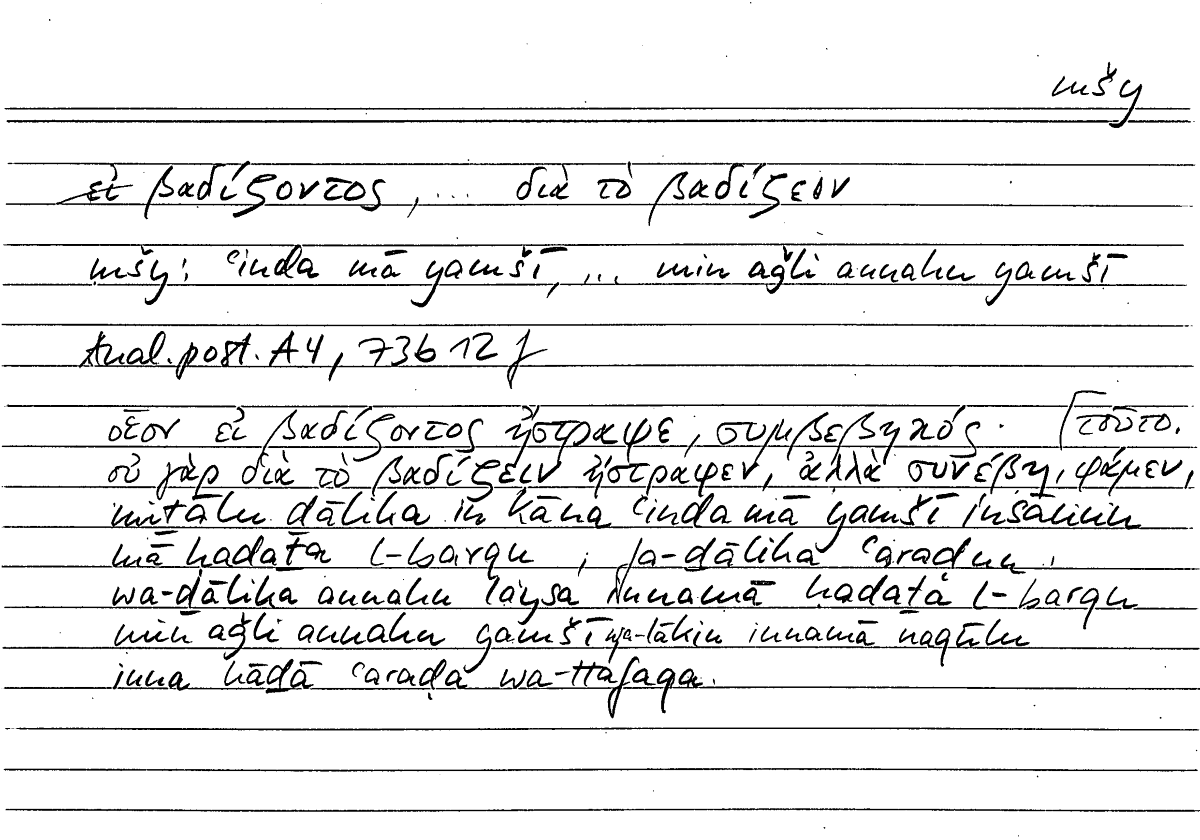 mšy
εἰ βαδίζοντος, ... διὰ τὸ βαδίζειν
mšy: ʿinda mā yamšī, ... min aǧli annahu yamšī
Anal. post. A4, 73b12f
οἷον εἰ βαδίζοντος ἤστραψε, συμβεβηκός. [τοῦτο.
οὐ γὰρ διὰ τὸ βαδίζειν ἤστραψεν, ἀλλὰ συνέβη, φάμεν,
miṯālu ḏālika in kāna ʿinda mā yamšī insānun
mā ḥadaṯa l-barqu, fa-ḏālika ʿaraḍun.
wa-ḏālika annahu laysa innamā ḥadaṯa l-barqu
min aǧli annahu yamšī wa-lākin innamā naqūlu
inna hāḏā ʿaraḍa wa-ttafaqa.